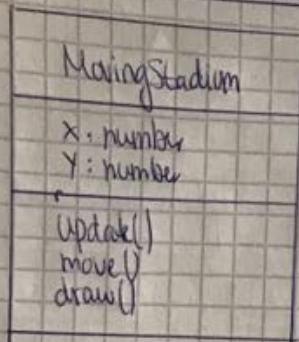 MovingStadium
X: number
Y: number
update()
move()
draw()